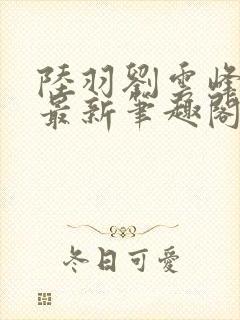 陸羽劉雲峰
最新筆趣閣
冬日可愛